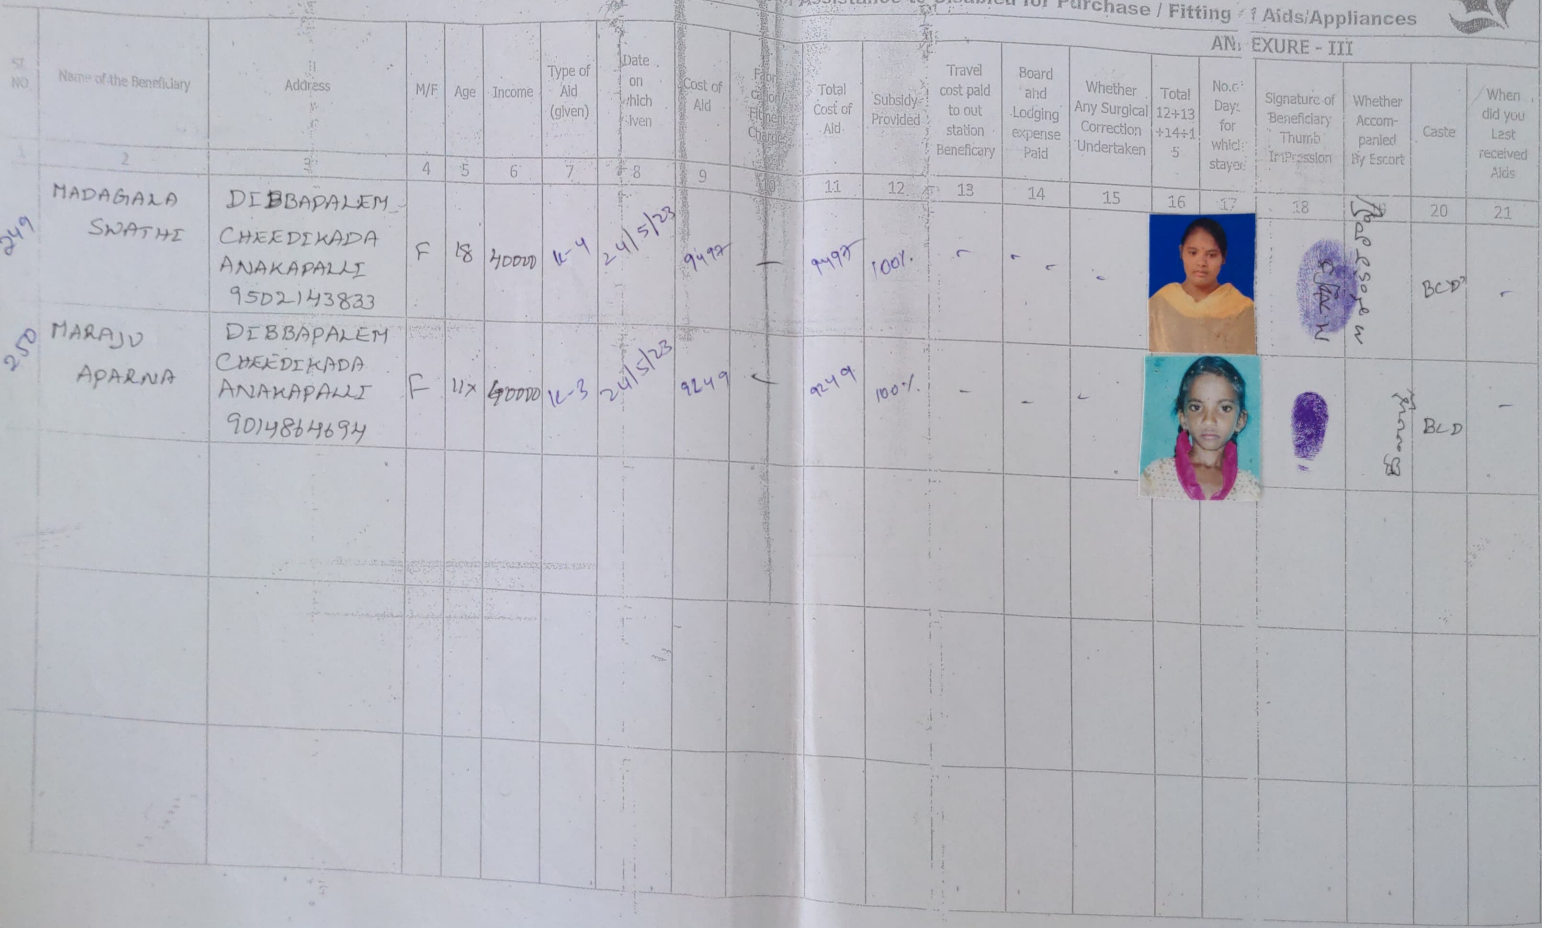 Assistance to Disabled for Purchase / Fitting Aids/Appliances
EXURE - III
NO
Name of the Beneficiary
Address
M/F
Age
Income
Type of
Aid
(given)
Date
on
Cost of
Aid
Total
Cost of
Aid
Subsidy
Provided
Travel
cost paid
to out
station
Beneficary
Board
and
Lodging
expense
Paid
Whether
Any Surgical
Correction
Undertaken
Total
12÷13
÷14÷1
5
for
Signature of
Beneficiary
Thumb
Whether
Accom-
panied
By Escort
Caste
When
did you
Last
received
Aids
2
3
4
5
6
7
8
9
10
11
12
13
14
15
16
17
18
20
21
249
MADAGALA
SWATHI
DIBBAPALEM
CHEEDIKADA
ANAKAPALLI
9502143833
F
18
40000
K-4
24/5/23
9497
-
9497
100%
-
-
-
-
BCD
-
250
MARAJU
APARNA
DIBBAPALEM
CHEEDIKADA
ANAKAPALLI
9014864694
F
40000
K-3
24/5/23
9249
-
9249
100%
-
-
-
BCD
-